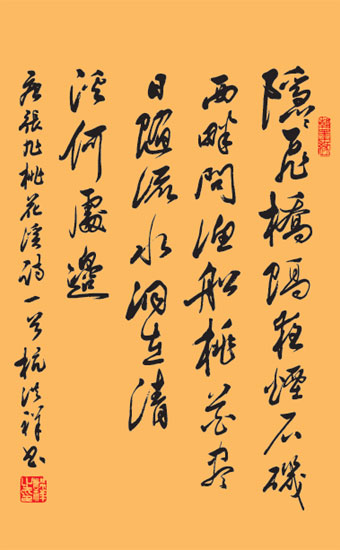 隱〻飛橋隔野煙石磯
西畔問漁船桃花盡
日隨流水洞在清
溪何處邊
唐張旭桃花溪詩一首杭洪祥书